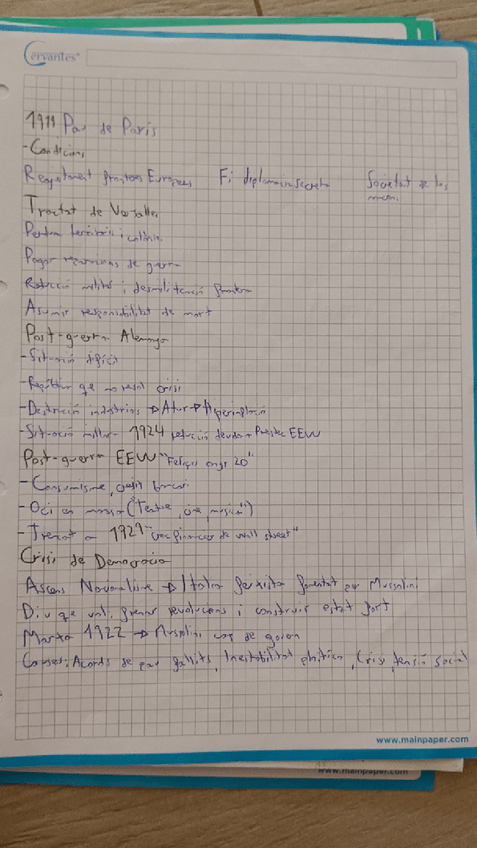 Cervantes
1919 Pau de París
- Condicions
Respectament fronteres Europees Fi diplomacia secreta Societat de les
nacions
Tractat de Versalles
Perdre territoris i colònies
Pagar reparacions de guerra
Reducció militar i desmilitarització frontera
Asumir responsabilitat de
Post-guerra Alemanya
- Situació difícil
- República que no resol crisi
- Destrucció indústries → Atur → Hiperinflació
- Situació millora 1924 reducció deutes + Préstec EEUU
Post-guerra EEUU "Feliços anys 20"
- Consumisme, crèdit bancari
- Oci en massa ("Teatre, cine, música")
- Trencat a 1929 "crac financer de Wall Street"
Crisi de Democracia
Ascens Nacionalisme → Italia feixista fomentat per Mussolini
Diu que vol frenar revolucions i construir estat fort
Marxa 1922 → Musolini cap de govern
Causes: Acords de pau fallits, Inestabilitat política, Crisi, tensió social
www.mainpaper.com
www.mainpaper.com